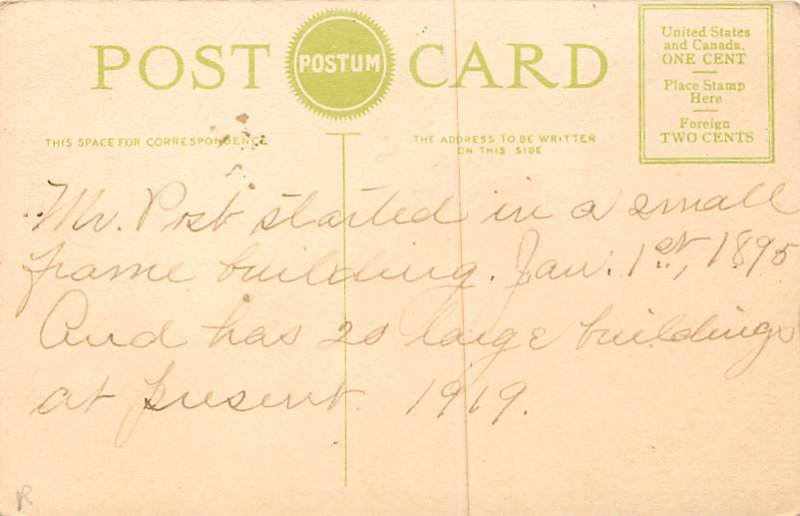 POST POSTUM CARD
United States
and Canada,
ONE CENT
Place Stamp
Here
Foreign
TWO CENTS
THIS SPACE FOR CORRESPONDENCE
THE ADDRESS TO BE WRITTEN
ON THIS SIDE
Mr. Post started in a small
frame building. Jan. 1st, 1895
And has 20 large buildings
at present. 1919.
R